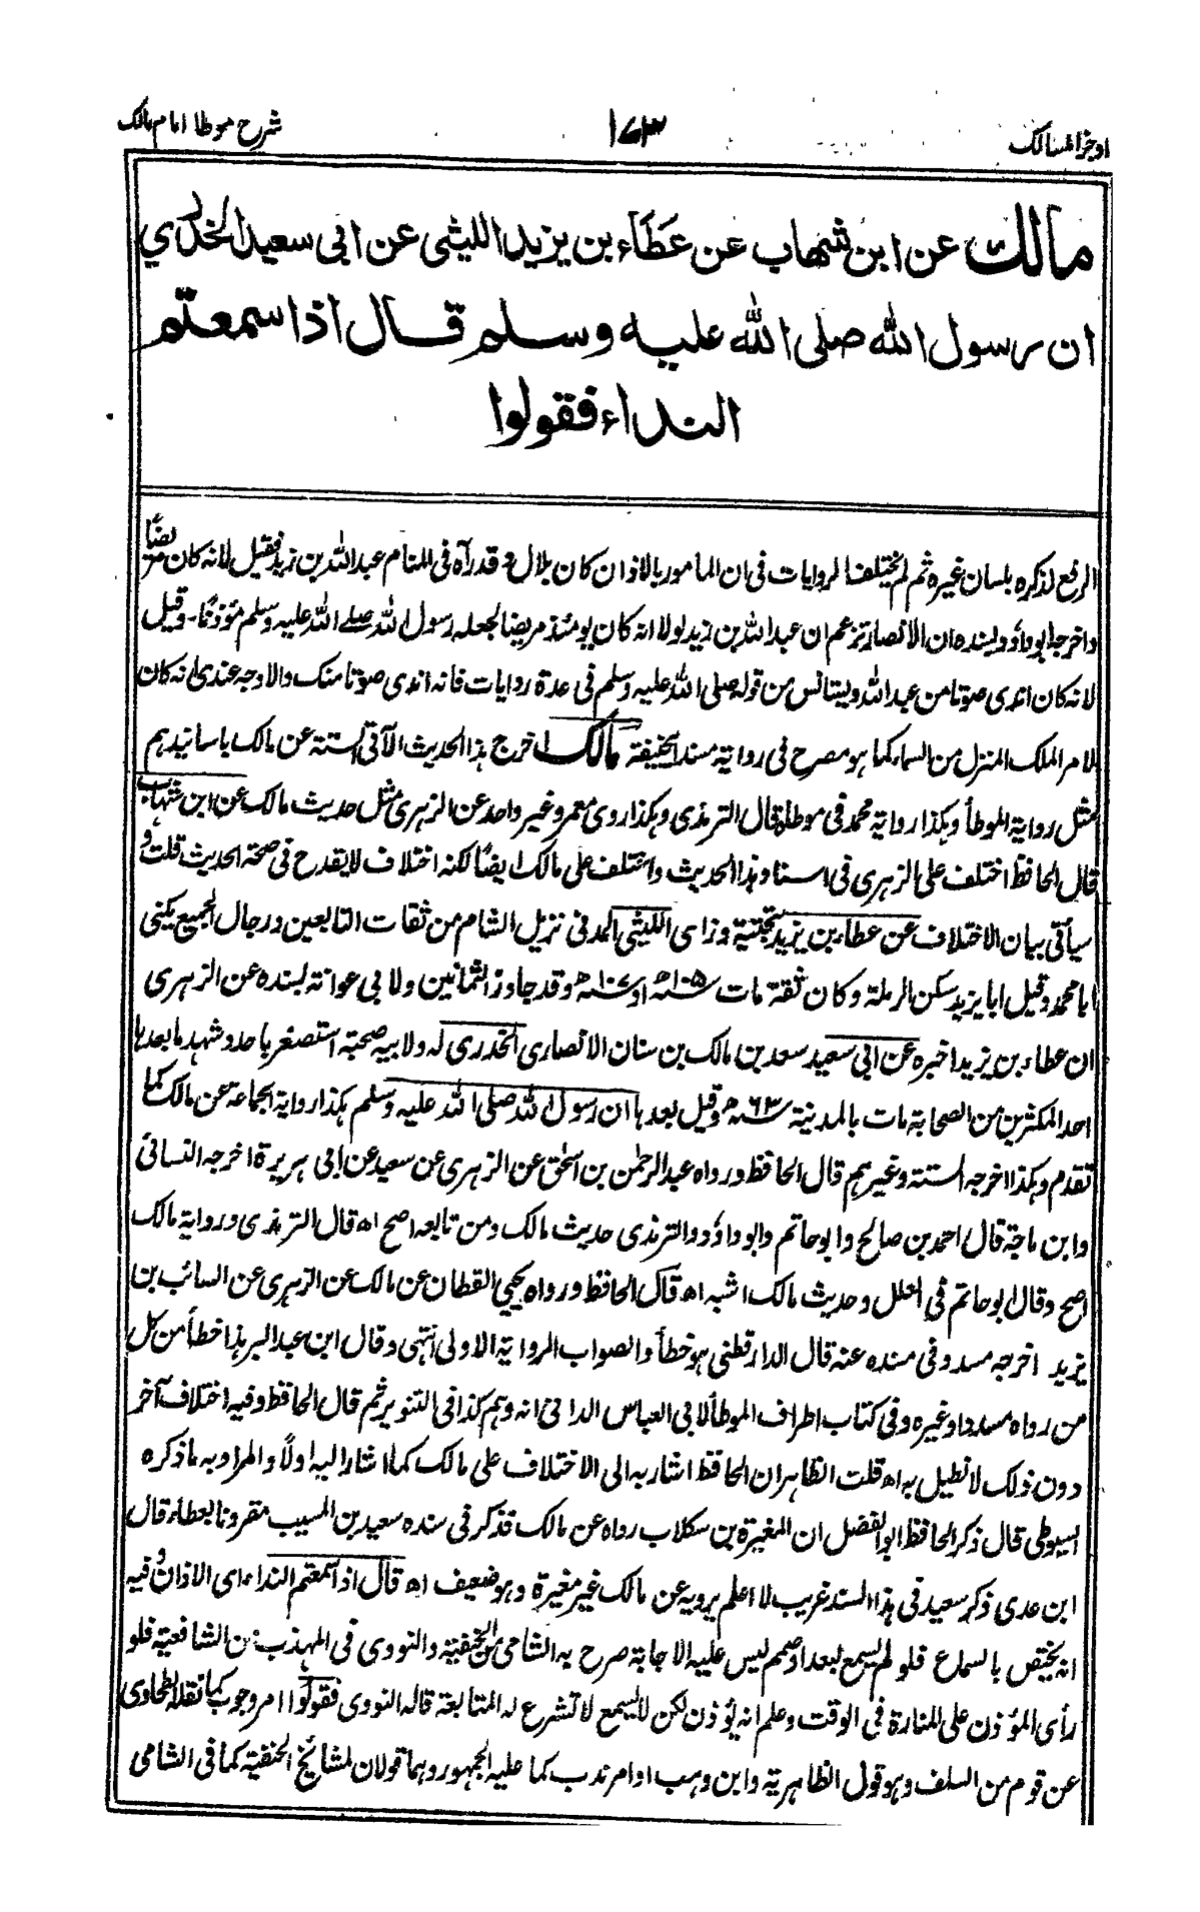 اوجز المسالک ۱۷۳ شرح موطا امام مالک
مالك عن ابن شهاب عن عطاء بن يزيد الليثي عن ابي سعيد الخدري
ان رسول الله صلى الله عليه وسلم قال اذا سمعتم
النداء فقولوا
الرفع لذكره بلسان غيره ثم لم يختلف الروايات فى ان المامور بالاذان كان بلال قد رآه فى المنام عبد الله بن زيد فقيل لانه كان مريضًا
واخرج ابو داؤد بسنده ان الانصار تزعم ان عبد الله بن زيد لولا انه كان يومئذ مريضا لجعله رسول الله صلے الله عليه وسلم مؤذنًا۔ وقيل
لانه كان اندى صوتا من عبد الله ويستانس من قوله صلى الله عليه وسلم فى عدة روايات فانه اندى صوتا منك والاوجه عندى انه كان
لامر الملك المنزل من السماء كما هو مصرح فى رواية مسند ابيحنيفة مالك اخرج هذا الحديث الآتى الستة عن مالك باسانيدهم
مثل رواية الموطأ وكذا رواية محمد فى موطاه قال الترمذى وهكذا روى معمر وغير واحد عن الزهرى مثل حديث مالك عن ابن شهاب
قال الحافظ اختلف على الزهرى فى اسناد هذا الحديث واختلف على مالك ايضًا لكنه اختلاف لا يقدح فى صحة الحديث قلت و
سيأتى بيان الاختلاف عن عطاء بن يزيد بتحتية وزاى الليثى المدنى نزيل الشام من ثقات التابعين ورجال الجميع يكنى
ابا محمد وقيل ابا يزيد سكن الرملة وكان ثقة مات سنة ۱۰۵ه او سنة ۱۰۷ه وقد جاوز الثمانين ولابى عوانة بسنده عن الزهرى
ان عطاء بن يزيد اخبره عن ابى سعيد سعد بن مالك بن سنان الانصارى الخدرى له ولابيه صحبة استصغر باحد وشهد ما بعدها
احد المكثرين من الصحابة مات بالمدينة سنة ۶۳ه وقيل بعدها ان رسول الله صلى الله عليه وسلم هكذا رواية الجماعة عن مالك كما
تقدم وهكذا اخرجه الستة وغيرهم قال الحافظ ورواه عبد الرحمن بن اسحٰق عن الزهرى عن سعيد عن ابى هريرة اخرجه النسائى
وابن ماجة قال احمد بن صالح وابو حاتم وابو داؤد والترمذى حديث مالك ومن تابعه اصح اه قال الترمذى ورواية مالك
اصح وقال ابو حاتم فى العلل وحديث مالك اشبه اه قال الحافظ ورواه يحيى القطان عن مالك عن الزهرى عن السائب بن
يزيد اخرجه مسدد فى مسنده عنه قال الدارقطنى هو خطأ والصواب الرواية الاولى انتهى وقال ابن عبد البر هذا خطأ من كل
من رواه مسددا وغيره وفى كتاب اطراف الموطأ لابى العباس الدانى انه وهم كذا فى التنوير ثم قال الحافظ وفيه اختلاف آخر
دون ذلك لا نطيل به اه قلت الظاهر ان الحافظ اشار به الى الاختلاف على مالك كما اشار اليه اولًا والمراد به ما ذكره
السيوطى قال ذكر الحافظ ابو الفضل ان المغيرة بن سكلاب رواه عن مالك فذكر فى سنده سعيد بن المسيب مقرونا بعطاء قال
ابن عدى ذكر سعيد فى هذا السند غريب لا اعلم يرويه عن مالك غير مغيرة وهو ضعيف اه قال اذا سمعتم النداء اى الاذان وفيه
انه يختص بالسماع فلو لم يسمع لبعد او صمم ليس عليه الاجابة صرح به الشامى من الحنفية والنووى فى المهذب من الشافعية فلو
رأى المؤذن على المنارة فى الوقت وعلم انه يؤذن لكن لا يسمع لا تشرع له المتابعة قاله النووى فقولوا امر وجوب كما نقله الطحاوى
عن قوم من السلف وهو قول الظاهرية وابن وهب او امر ندب كما عليه الجمهور وهما قولان لمشائخ الحنفية كما فى الشامى